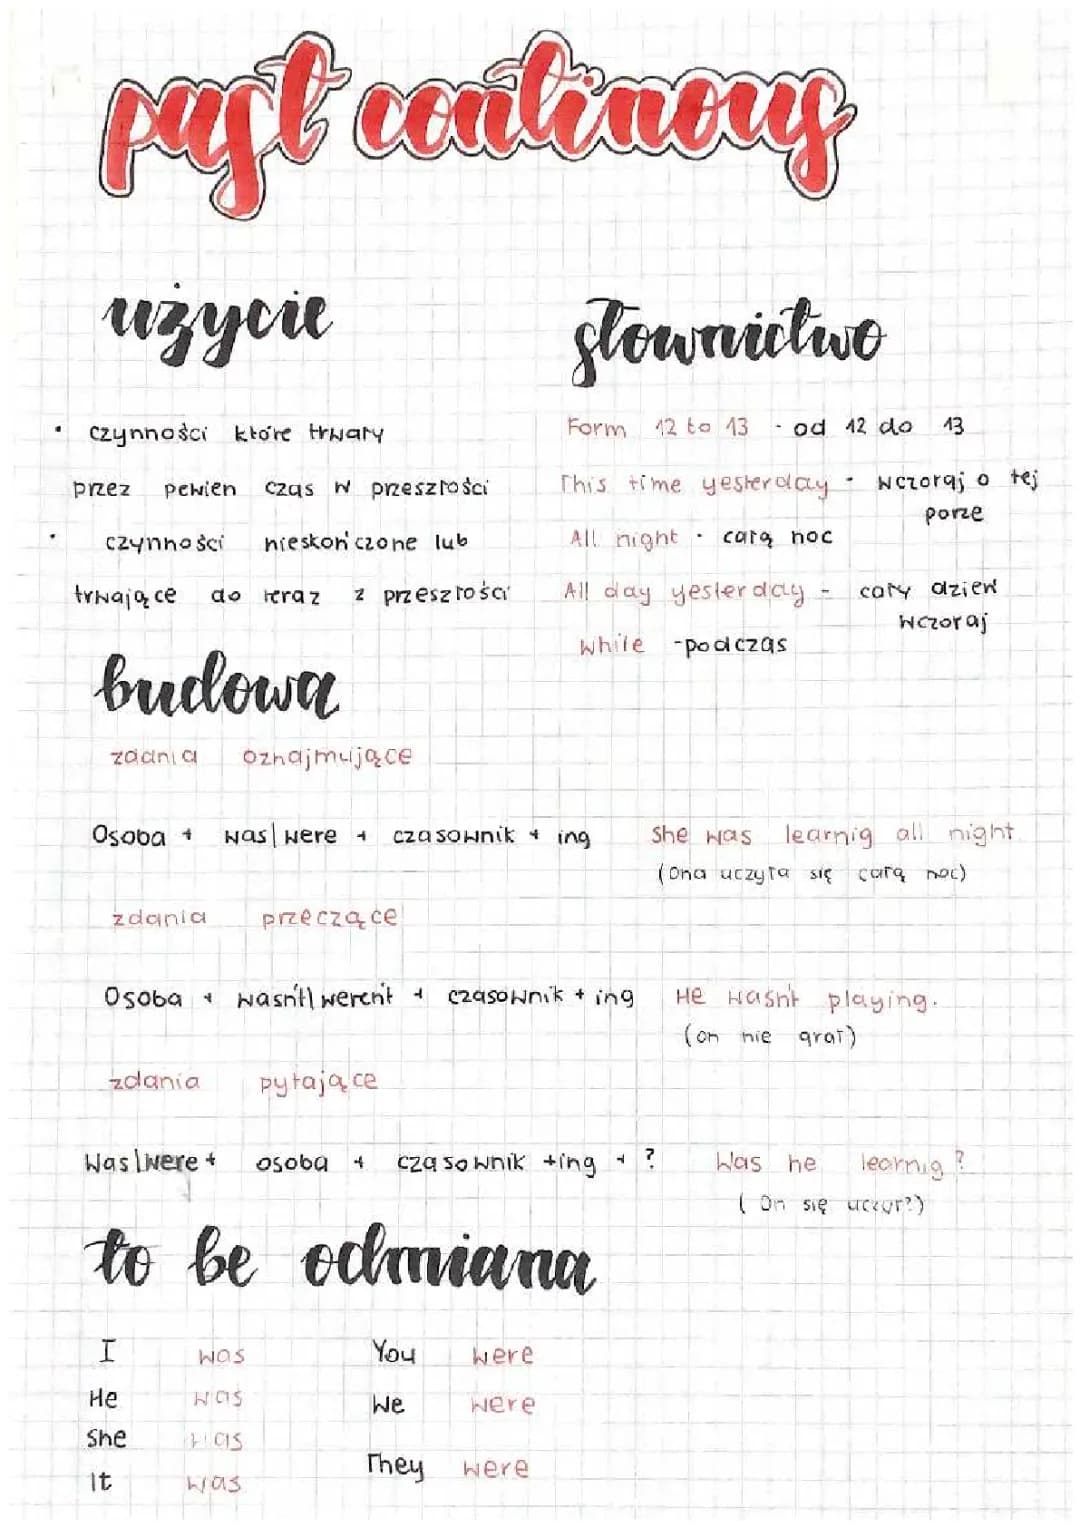 past continous
użycie
• czynności które trwały
przez pewien czas w przeszłości
• czynności nieskończone lub
trwające do teraz z przeszłości
słownictwo
Form 12 to 13 - od 12 do 13
This time yesterday - wczoraj o tej
porze
All night - całą noc
All day yesterday - cały dzień
wczoraj
while - podczas
budowa
zdania oznajmujące
Osoba + was|were + czasownik + ing She was learnig all night.
(Ona uczyła się całą noc)
zdania przeczące
Osoba + wasn't|weren't + czasownik + ing He wasn't playing.
(on nie grał)
zdania pytające
Was|were + osoba + czasownik +ing + ? Was he learnig?
( On się uczył?)
to be odmiana
I was You were
He was We were
She was
They were
It was